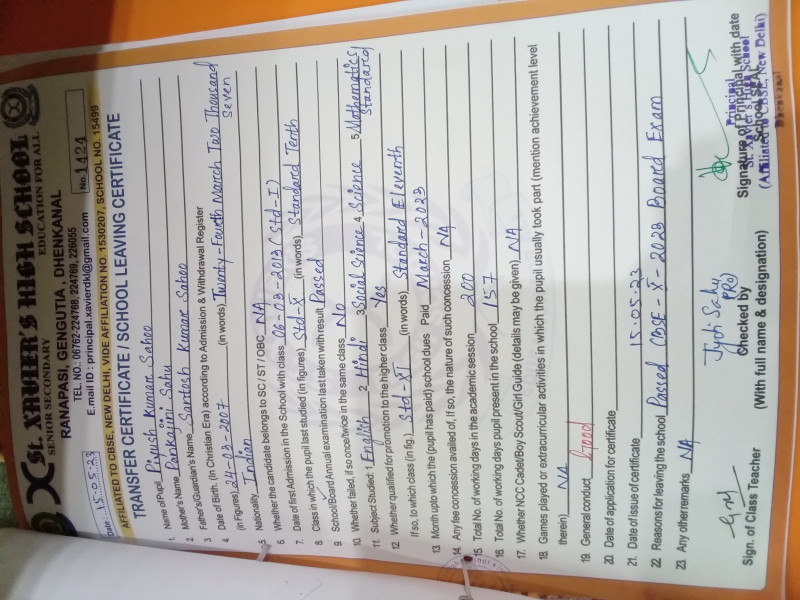 St. XAVIER'S HIGH SCHOOL
SENIOR SECONDARY EDUCATION FOR ALL
RANAPASI, GENGUTIA, DHENKANAL
TEL. NO.: 06762-224768, 224769, 226055
Date 15.05.23 E.mail ID : principal.xavierdkl@gmail.com No. 1424
AFFILIATED TO CBSE, NEW DELHI, VIDE AFFILIATION NO. 1530207, SCHOOL NO. 15499
TRANSFER CERTIFICATE / SCHOOL LEAVING CERTIFICATE
1. Name of Pupil Piyush Kumar Sahoo
2 Mother's Name Pankajini Sahu
3 Father's/Guardian's Name Santosh Kumar Sahoo
4. Date of Birth. (In Christian Era) according to Admission & Withdrawal Register
(in Figures) 24-03-2007 (in words) Twenty-Fourth March Two Thousand Seven
5. Nationality Indian
6. Whether the candidate belongs to SC / ST / OBC NA
7. Date of first Admission in the School with class 06-03-2013 (Std-I)
8. Class in which the pupil last studied (in figures) Std-X (in words) Standard Tenth
9. School/Board Annual examination last taken with result Passed
10. Whether failed, if so once/twice in the same class No
11. Subject Studied: 1 English 2 Hindi 3 Social Science 4 Science 5 Mathematics Standard
12. Whether qualified for promotion to the higher class Yes
If so, to which class (in fig.) Std-XI (in words) Standard Eleventh
13. Month upto which the (pupil has paid) school dues Paid March-2023
14. Any fee concession availed of, if so, the nature of such concession NA
15. Total No. of working days in the academic session 200
16 Total No. of working days pupil present in the school 157
17. Whether NCC Cadet/Boy Scout/Girl Guide (details may be given) NA
18. Games played or extracurricular activities in which the pupil usually took part (mention achievement level
therein) NA
19. General conduct Good
20. Date of application for certificate
21. Date of issue of certificate 15.05.23
22 Reasons for leaving the school Passed CBSE-X-2023 Board Exam
23. Any other remarks NA
Sign. of Class Teacher
Checked by
(With full name & designation)
Signature of Principal with date
School SEAL
Principal
St. Xavier's High School
(Affiliated to CBSE, New Delhi)
Dhenkanal